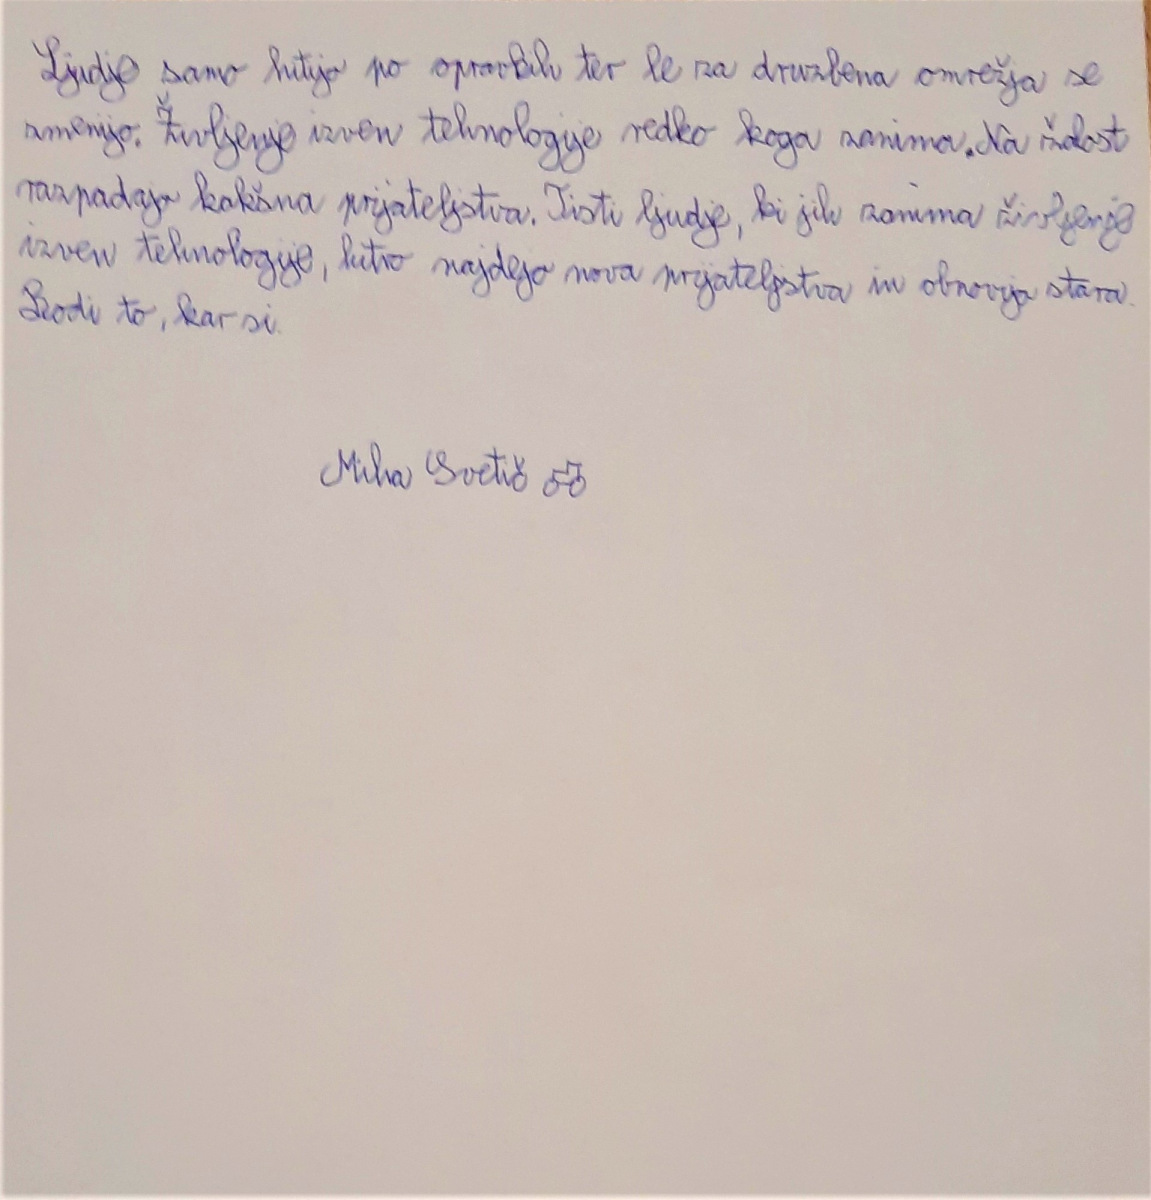 Ljudje samo hitijo po opravkih ter le za družbena omrežja se
zmenijo. Življenje izven tehnologije redko koga zanima. Na žalost
razpadajo kakšna prijateljstva. Tisti ljudje, ki jih zanima življenje
izven tehnologije, hitro najdejo nova prijateljstva in obnovijo stara.
Bodi to, kar si.
Miha Svetič